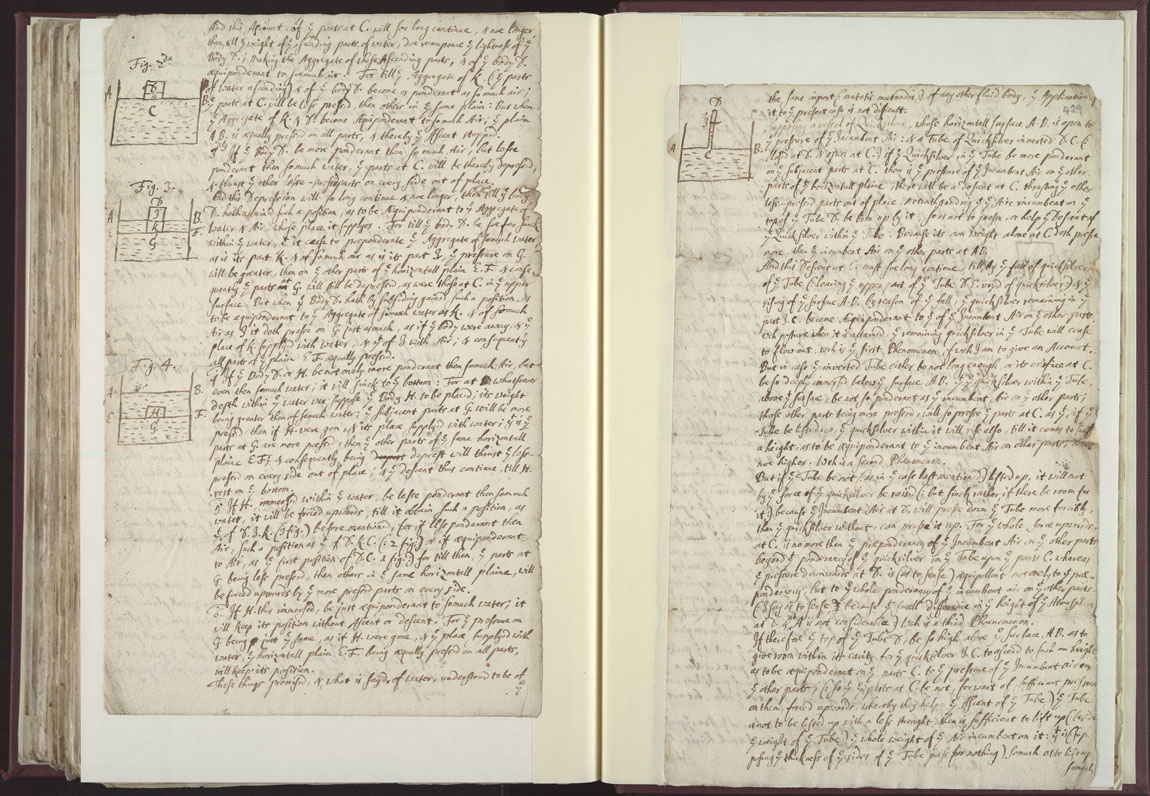 And this Ascent of yͤ parts at C. will soe long continue, & noe longer,
then till yͤ weight of yͤ ascending parts of water, doe recompence yͤ lightness of yͤ
Body D.; making the Aggregate of those Ascending parts, & of yͤ body D.
æquiponderant to somuch air. For till yͤ Aggregate of K (yͤ parts
of water ascending) & of yͤ body D. become as ponderant as somuch air;
yͤ parts at C. will be less pressed, then others in yͤ same plain: But when
yͤ Aggregate of K & D. become Æquiponderant to somuch Air; yͤ plain
A B. is æqually pressed on all parts, & thereby yͤ Ascent stopped.
3ly If yͤ Body D. be more ponderant then somuch Air, but lesse
ponderant then somuch water, yͤ parts at C. will be thereby depressed,
& thrust yͤ other lesse-pressed parts on every side out of place.
And this Depression will so long continue & noe longer, then till yͤ body
D. hath attained such a position, as to be Æquiponderant to yͤ Aggregate of
water & Air, whose place it supplyes. For till yͤ body D. be soe far sunk
within yͤ water,
as is its part K. & of somuch air as is its part I, yͤ pressure on G.
will be greater, then on yͤ other parts of yͤ horizontall plain E.F. & conse-
quently yͤ parts at G. will still be depressed, as were those at C. in yͤ upper
surface. But when yͤ Body D. hath by subsiding gained such a position, as
to be æquiponderant to yͤ Aggregate of somuch water as K. & of somuch
Air as I. it doth presse on G just asmuch, as if yͤ body were away, & yͤ
place of K. supplyed with water, & of I. with Air; & consequently
all parts of yͤ plain E.F. æqually pressed.
4. If yͤ Body D. or H. be not onely more ponderant then somuch Air, but
even then somuch water; it will sinck to yͤ bottom: For at whatsoever
depth within yͤ water wee suppose yͤ Body H. to be placed; its weight
being greater then of somuch water: yͤ subjacent parts at G. will be more
pressed, then if H. were gon & its place supply'd with water; yͤ
parts at G. are more pressed, then yͤ other parts of yͤ same horizontall
plaine E.F; & consequently being deprest will thrust yͤ less-
pressed on every side out of place; & yͤ descent thus continue, till H.
rest on yͤ bottom.
5. If H. immersed within yͤ water, be lesse ponderant then somuch
water, it will be forced upwards, till it obtain such a position, as
yͤ of D.I.K. (3 fig.) before mentioned, (or if less ponderant then
Air, such a position as yͤ of D.K.C. (2 fig.) or if æquiponderant
to Air, as yͤ first position of D.C. 1 fig.) for till then, yͤ parts at
G. being less pressed, then others in yͤ same horizontall plaine, will
be forced upwards by yͤ more pressed parts on every side.
6. If H. thus immersed, be just æquiponderant to somuch water; it
will keep its position without Ascent or descent. For yͤ pressure on
G. being just yͤ same, as if H. were gone, & yͤ place supplyed with
water, yͤ horizontall plain E.F. being æqually pressed on all parts,
will keep its position.
These things premised, & what is sayd, of water, understood to be of
yͤ
Fig. 2da
A B
D
K
C
Fig. 3.
D
A B.
I
K
E F.
G
Fig. 4.
A. B.
E F.
H
G
423
the same import (mutatis mutandis) of any other fluid body; yͤ Application of
it to yͤ present case is not difficult.
Supposing a vessel of Quicksilver, whose horizontall surface A.B. is open to
yͤ pressure of yͤ Incumbent Air; & a Tube of Quicksilver inverted D.C. (
closed at D. & open at C.) if yͤ Quicksilver in yͤ Tube be more ponderant
on yͤ subjacent parts at C. then is yͤ pressure of yͤ Incumbent Air on yͤ other
parts of yͤ horizontall plaine, there will be a descent at C. thrusting yͤ other
less-pressed parts out of place, notwithstanding yͤ Air incumbent on yͤ
top of yͤ Tube D. be born up by it, so as not to presse, or help yͤ Descent of
yͤ Quicksilver within yͤ Tube: Because its own weight alone at C. doth presse
more then yͤ incumbent Air on yͤ other parts at AB.
And this Descent at C. must soe long continue, till by yͤ fall of quicksilver
of yͤ Tube (leaving yͤ upper part of yͤ Tube D.I. void of quicksilver) & yͤ
rising of yͤ surface A.B. by reason of yͤ fall, yͤ quicksilver remaining in yͤ
part I.C. become Æquiponderant to yͤ of yͤ Incumbent Air on yͤ other parts.
Wch posture when it is attained, yͤ remaining quicksilver in yͤ Tube will cease
to flow out; wch is yͤ first Phenomenon, of wch I am to give an Account.
But in case yͤ inverted Tube either be not long enough, or its orifice at C.
be so deeply immersed below yͤ surface AB. yͤ quicksilver within yͤ Tube,
above yͤ surface, be not so ponderant as yͤ incumbent Air on yͤ other parts;
those other parts being more pressed, will so presse yͤ parts at C. as yͤ, if yͤ
Tube be lifted up, yͤ quicksilver within it will rise also, till it comes to such
a height, as to be æquiponderant to yͤ incumbent Air on other parts,
not higher. Wch is a second Phænomenon.
But if yͤ Tube be not (as in yͤ case last mention'd) lifted up, it will not
by yͤ force of yͤ quicksilver be raised (but sinck rather, if there be room for
it) because yͤ Incumbent Air at D. will presse down yͤ Tube more forcibly,
then yͤ quicksilver without, can presse it up. For yͤ whole force upwards
at C. is no more then yͤ præponderancy of yͤ Incumbent Air on yͤ other parts
beyond yͤ ponderancy of yͤ quicksilver in yͤ Tube upon yͤ parts C. whereas
yͤ pressure downwards at D. is (as to sense) æquipollent not onely to yͤ præ-
ponderancy, but to yͤ whole ponderancy of yͤ incumbent air on yͤ other parts.
(I say as to sense, because yͤ small difference in yͤ height of yͤ Atmosphere
at D. & yͤ AB is not considerable) Wch is a third Phœnomenon.
If therefore yͤ top of yͤ Tube D. be so high above yͤ surface AB. as to
give room within its cavity for yͤ quicksilver I.C. to ascend to such an height
as to be æquiponderant on yͤ parts C. to yͤ pressure of yͤ Incumbent Air on
yͤ other parts, (so yͤ yͤ parts at C. be not, for want of sufficient pressure
on them, forced upwards, whereby they help yͤ Assent of yͤ Tube) yͤ Tube
is not to be lifted up with a less strength, then is sufficient to lift up (beside
yͤ weight of yͤ Tube) yͤ whole weight of yͤ Air incumbent on it: yͤ is (sup-
posing yͤ thickness of yͤ sides of yͤ Tube pass for nothing) somuch as to lift up
somuch
D
I
A B.
C